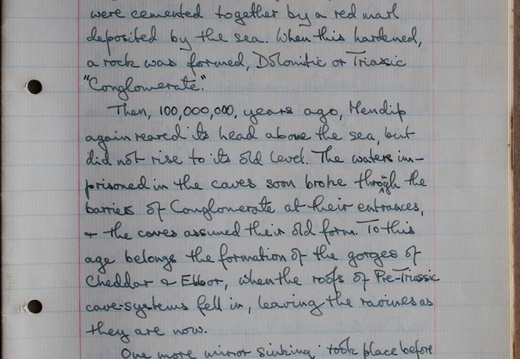 were cemented together by a red marl
deposited by the sea. When this hardened,
a rock was formed, Dolomitic or Triassic
"Conglomerate."
Then, 100,000,000, years ago, Mendip
again reared its head above the sea, but
did not rise to its old level. The waters im-
prisoned in the caves soon broke through the
barriers of Conglomerate at their entrances,
+ the caves assumed their old form. To this
age belongs the formation of the gorges of
Cheddar & Ebbor, when the roofs of Pre-Triassic
cave-systems fell in, leaving the ravines as
they are now.
One more minor sinking took place before